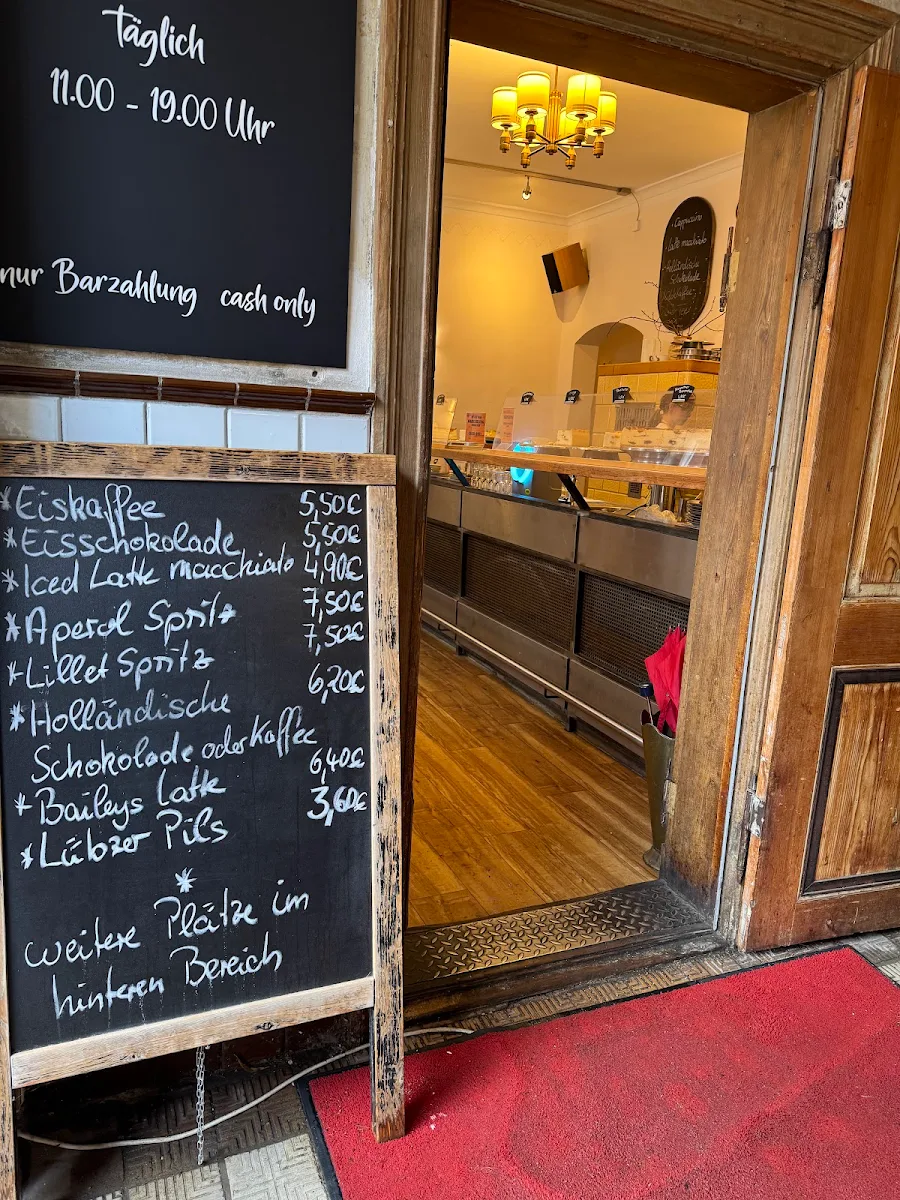 täglich
11.00 - 19.00 Uhr
nur Barzahlung cash only
Cappuccino
Latte macchiato
Holländische
Schokolade
* Eiskaffee 5,50€
* Eisschokolade 5,50€
* Iced Latte macchiato 4,90€
* Aperol Spritz 7,50€
* Lillet Spritz 7,50€
* Holländische 6,20€
Schokolade oder Kaffee
* Baileys Latte 6,40€
* Lübzer Pils 3,60€
*
weitere Plätze im
hinteren Bereich